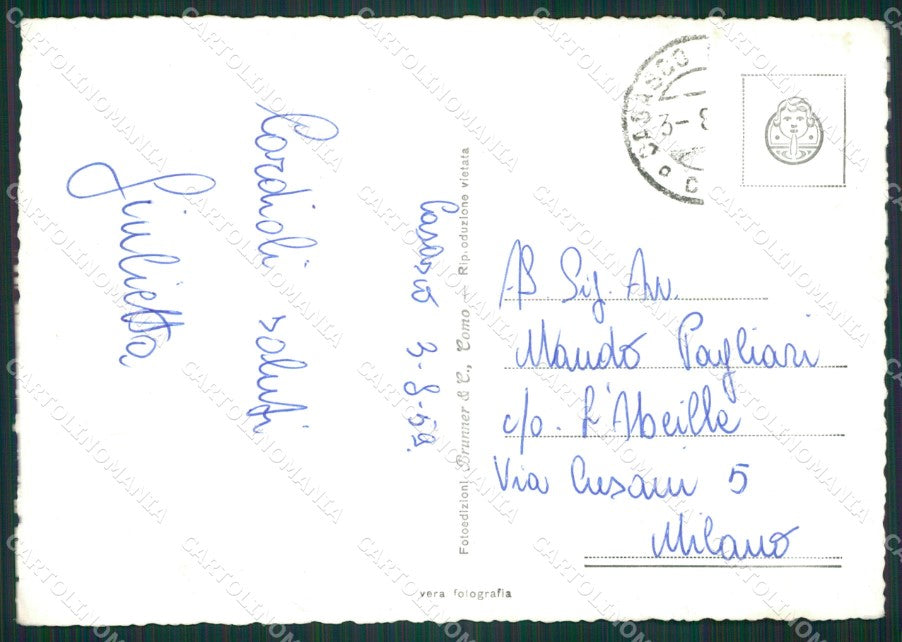 Cordiali saluti
Giulietta
3-8-59.
Fotoedizioni Brunner & C., Como — Riproduzione vietata
3-8
Sig. Avv.
Pagliari
c/o. L'Abeille
Via Cusani 5
Milano
vera fotografia
CARTOLINOMANIA